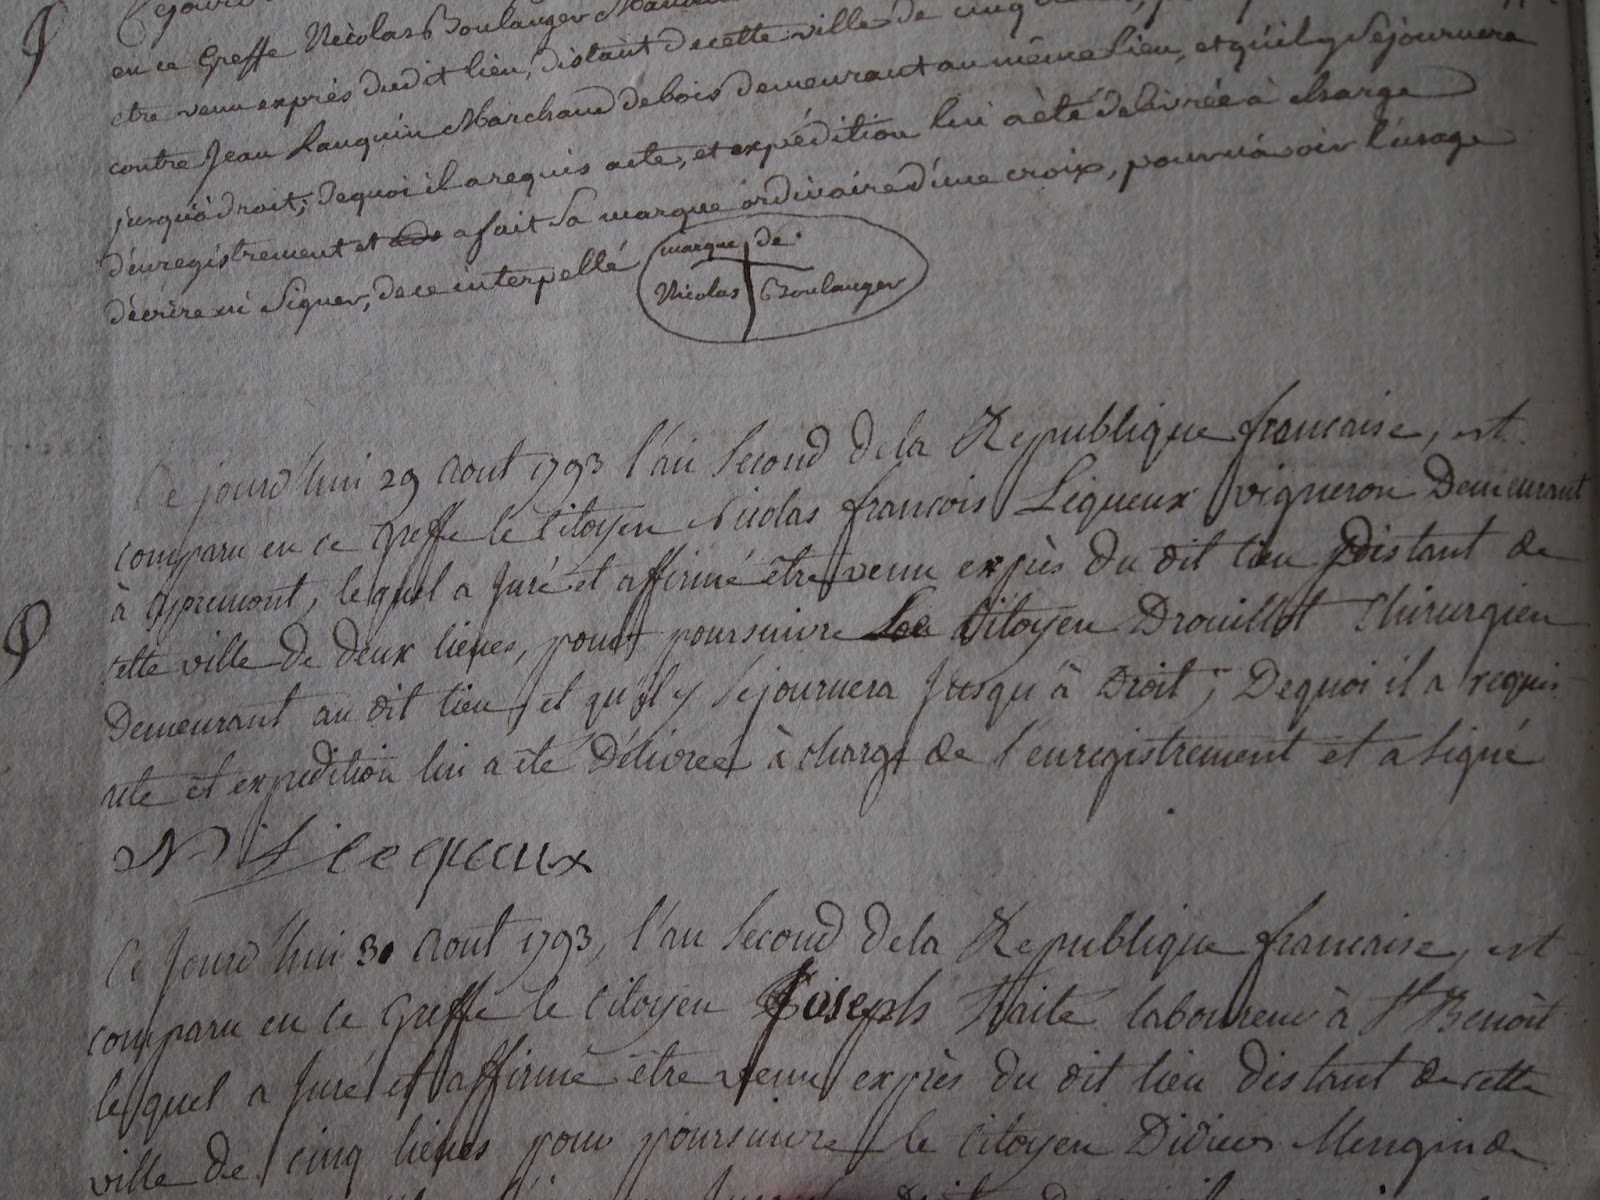 en ce Greffe Nicolas Boulanger
etre venu exprés dudit lieu, distant de cette ville de cinq
contre Jean Lanquin Marchand de bois demeurant au même lieu, et qu'il y Séjournera
jusqu'à droit; dequoi il a requis acte, et expédition lui a été délivrée à charge
d'enregistrement et a fait Sa marque ordinaire d'une croix, pour n'avoir l'usage
d'écrire ni Signer, de ce interpellé
marque de
Nicolas Boulanger
Ce jourd'hui 29 Aout 1793 l'an Second de la Republique francaise, est
comparu en ce Greffe le Citoyen Nicolas francois Lequeux vigneron Demeurant
à Apremont, lequel a Juré et affirmé être venu exprès du dit lieu distant de
cette ville de deux lieues, pour poursuivre Le Citoyen Drouillot Chirurgien
Demeurant au dit lieu, et qu'il y Séjournera Jusqu'à Droit; Dequoi il a requis
acte et expedition lui a été Délivrée à charge de l'enregistrement et a Signé
N f lequeux
Ce Jourd'hui 30 Aout 1793, l'an Second de la Republique francaise, est
comparu en ce Greffe le Citoyen Joseph Haite laboureur à St Benoit
lequel a Juré et affirmé être venu exprès du dit lieu distant de cette
ville de cinq lieues pour poursuivre le Citoyen Didier Mengin de